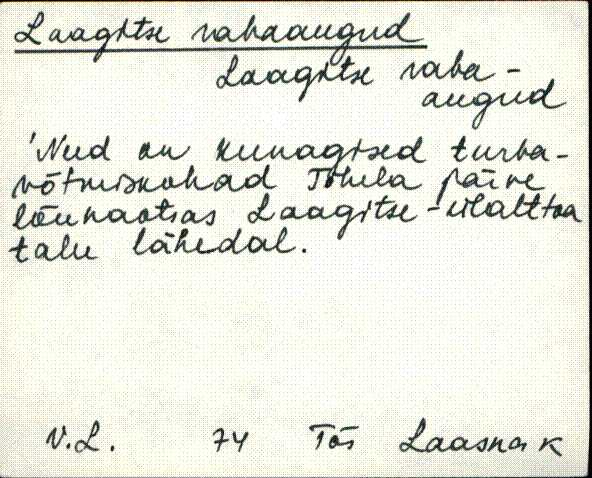 Laagitse rabaaugud
Laagitse raba-
augud
'Need on kunagised turba-
võtmiskohad Tõhela järve
lõunaotsas Laagitse-
talu lähedal.
V.L. 74 Tõs Laasnak